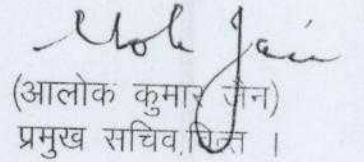 Alok Jain
(आलोक कुमार जैन)
प्रमुख सचिव, वित्त ।